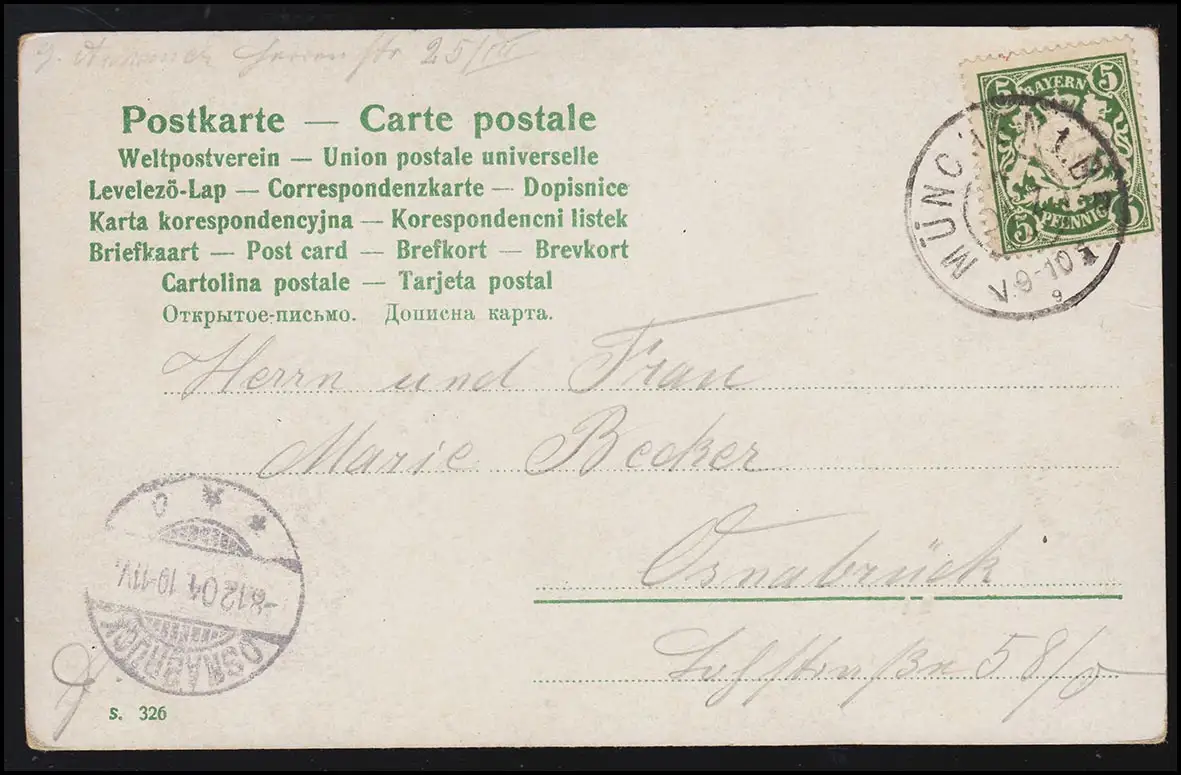 Herrenstr 25/III
Postkarte — Carte postale
Weltpostverein — Union postale universelle
Levelező-Lap — Correspondenzkarte — Dopisnice
Karta korespondencyjna — Korespondencni listek
Briefkaart — Post card — Brefkort — Brevkort
Cartolina postale — Tarjeta postal
Открытое-письмо. Дописна карта.
5 BAYERN 5
5 PFENNIG 5
MÜNCHEN 1. B.P.
V.9-10
9
Herrn und Frau
Marie Becker
Osnabrück
Lohstraße 58/0
OSNABRÜCK
-8.12 04 10-11V.
* * c
S. 326